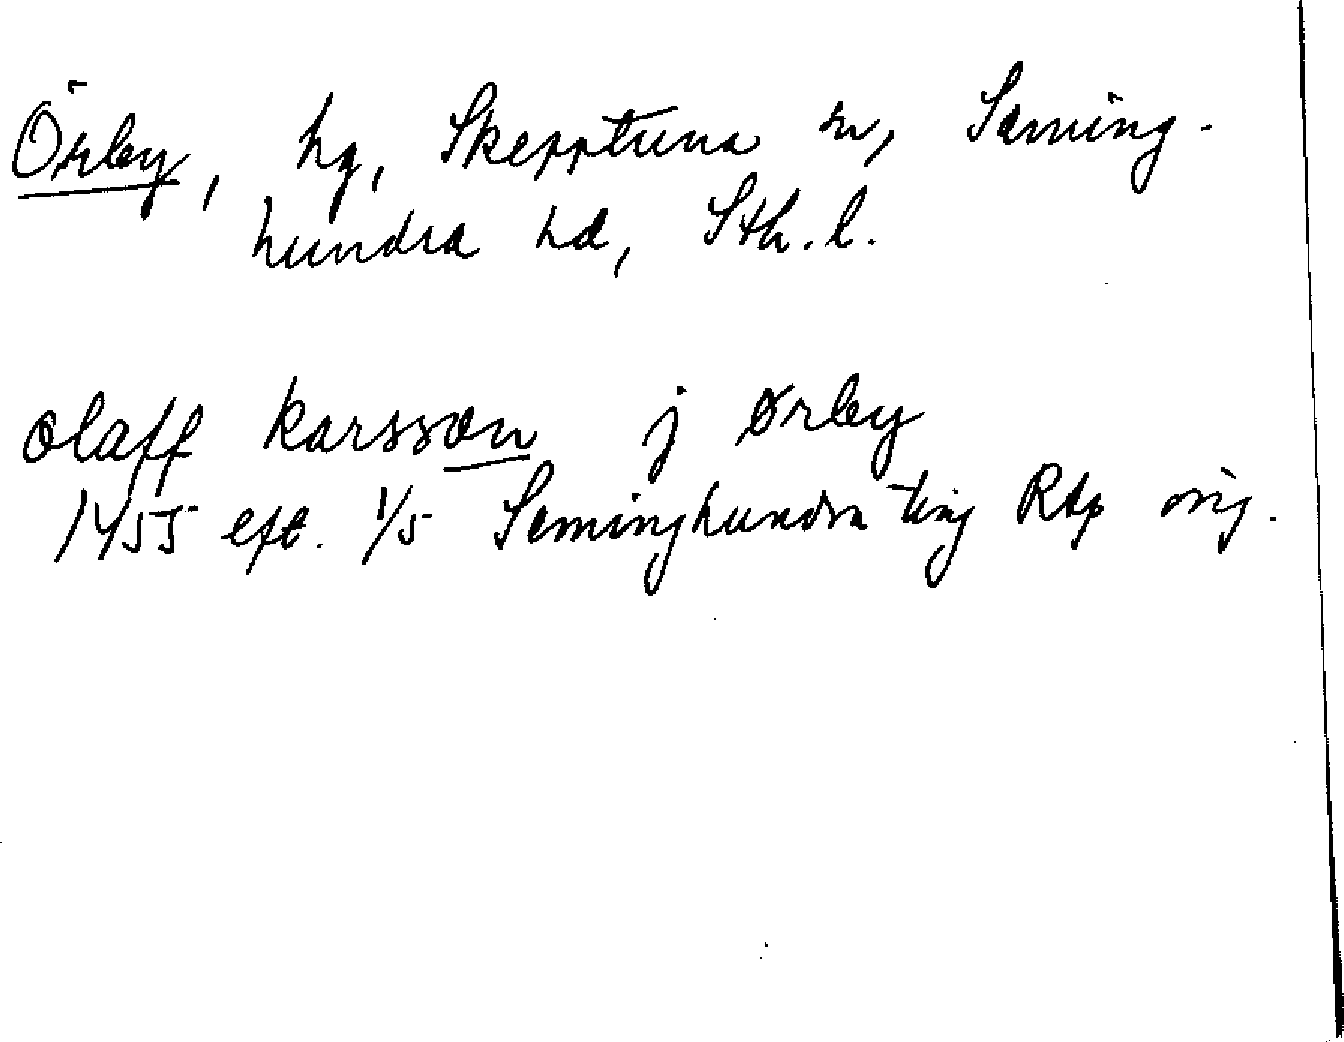 Örby, hg, Skepptuna sn, Seming-
hundra hd, Sth. l.
olaff karssøn j ørby
1455 eft. 1/5 Seminghundra ting Rap orig.